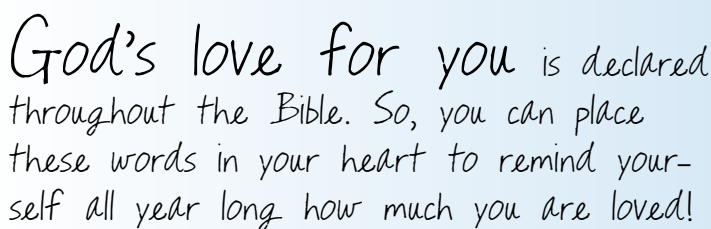 God's love for you is declared
throughout the Bible. So, you can place
these words in your heart to remind your-
self all year long how much you are loved!